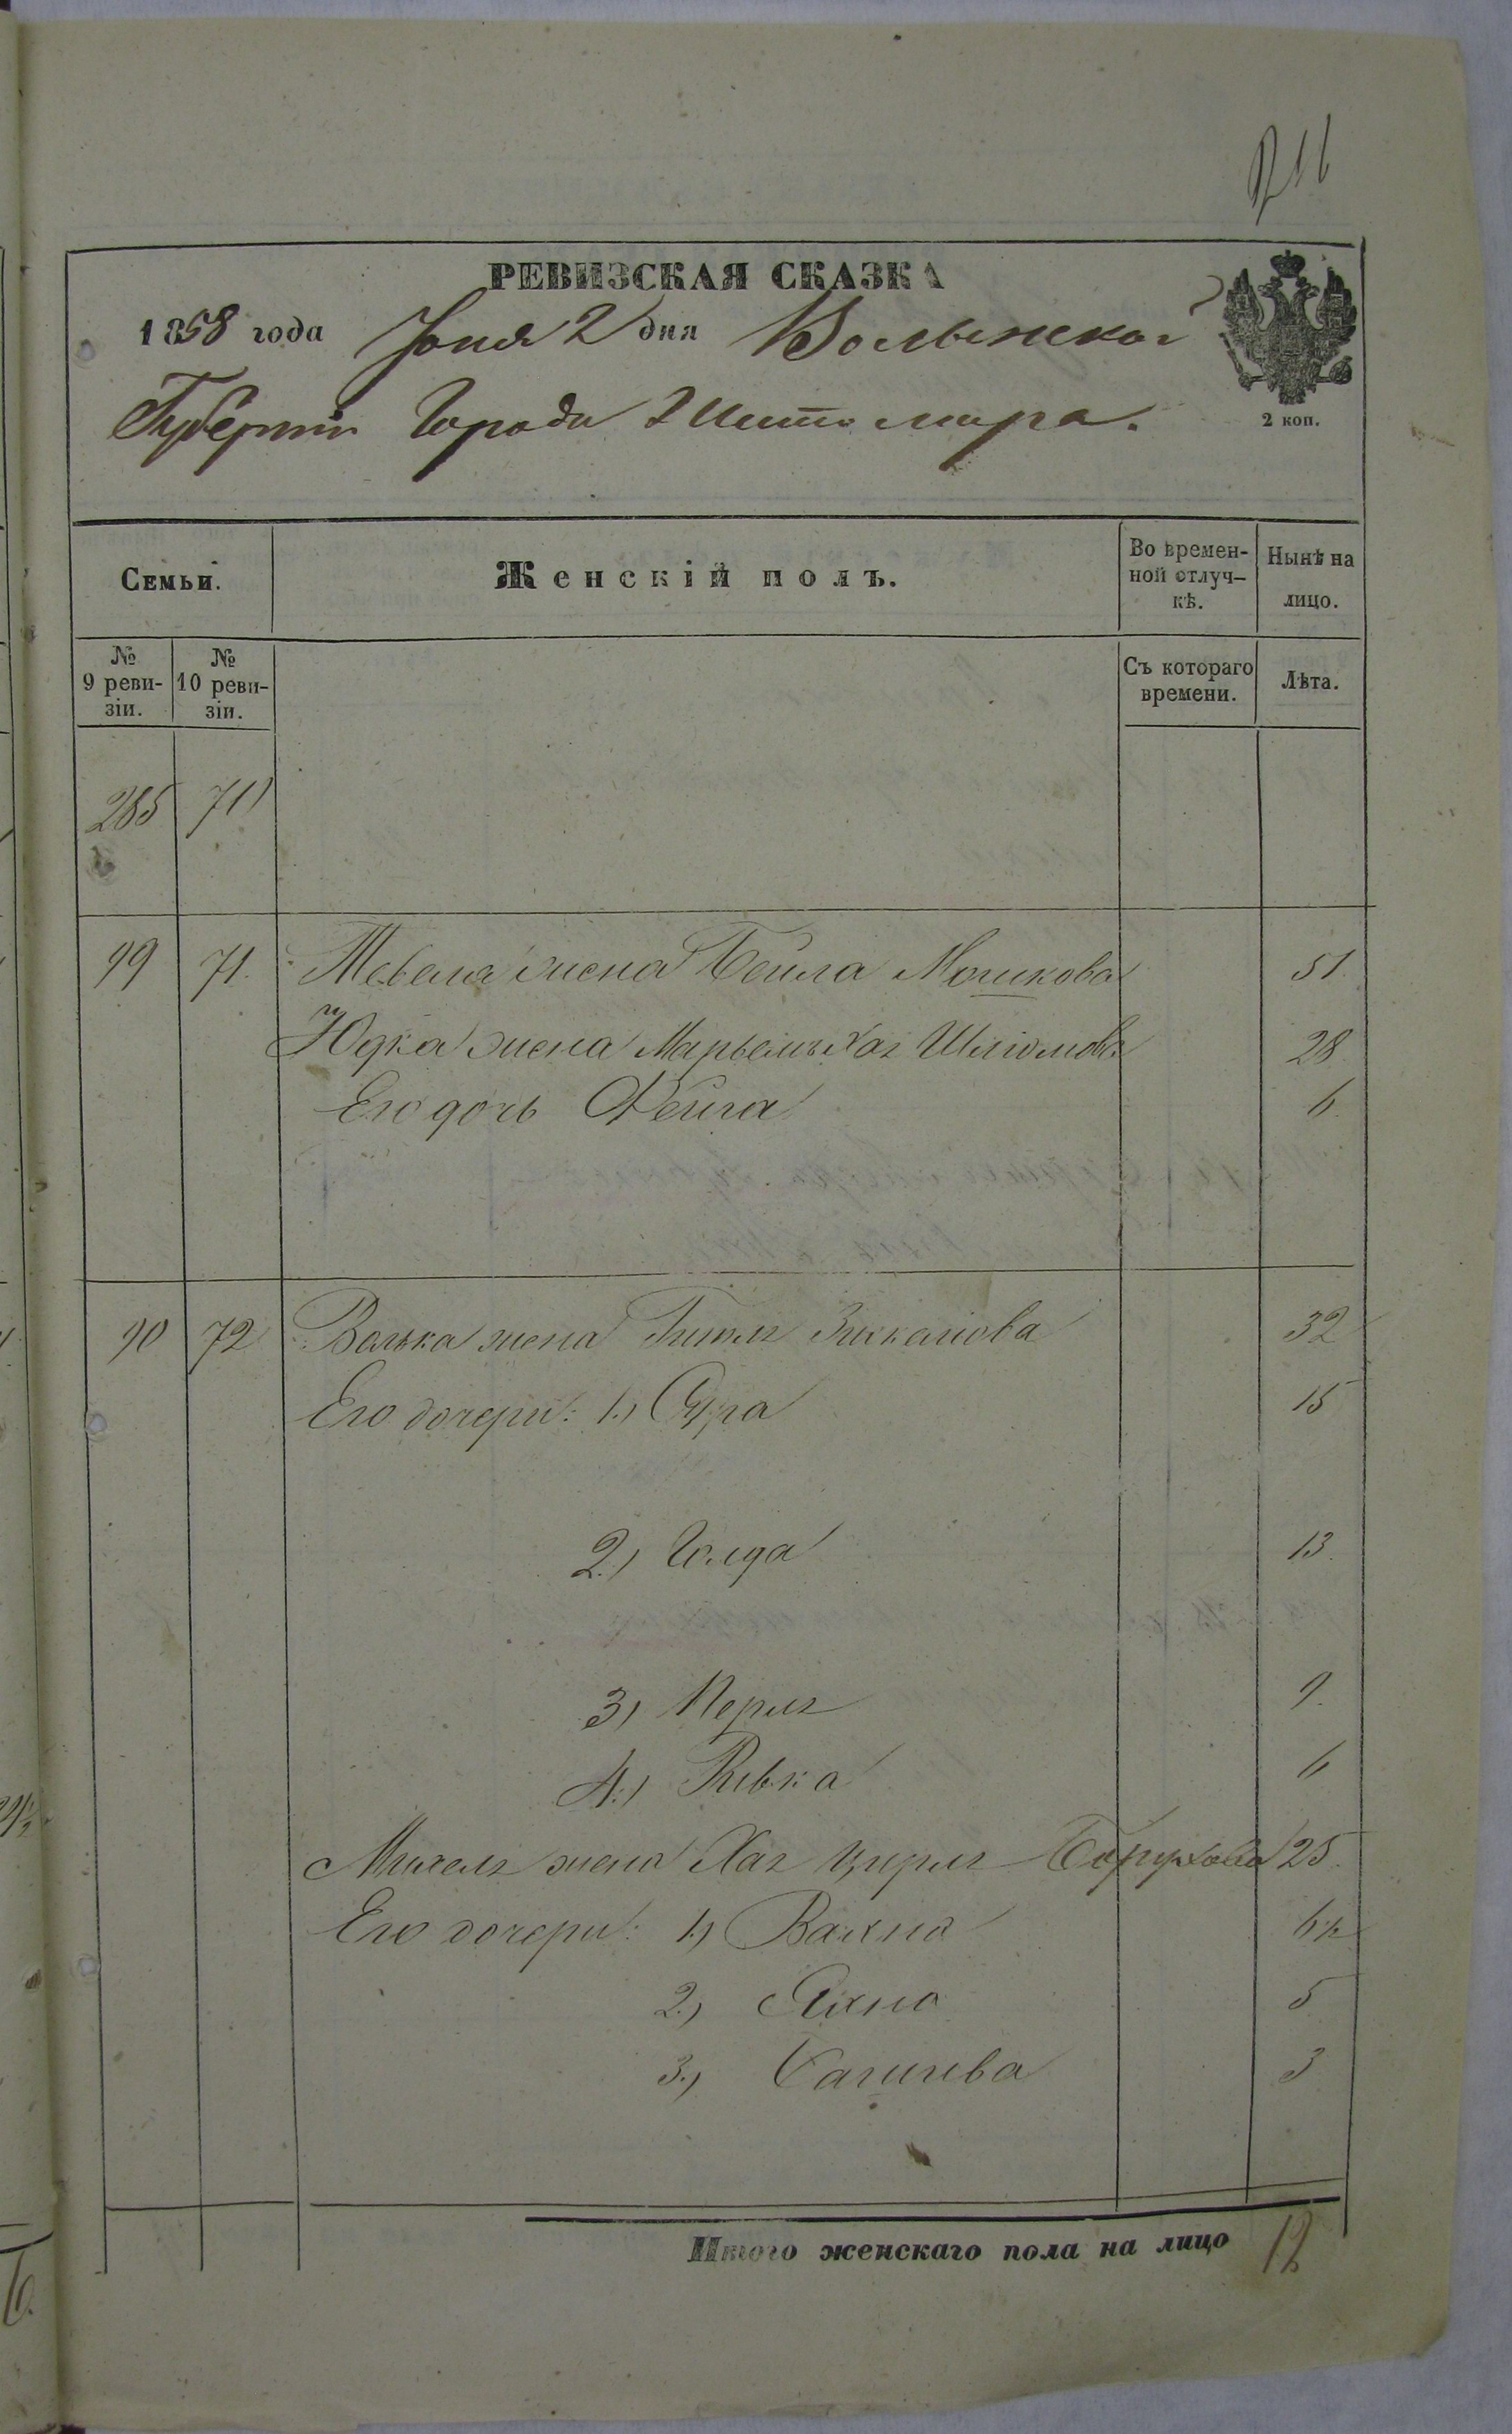 РЕВИЗСКАЯ СКАЗКА
1858 года Іюня 2 дня Волынской
Губерніи Города Житомира.
2 коп.
Семьи.
Женскій полъ.
Во времен-
ной отлуч-
кѣ.
Нынѣ на
лицо.
№
9 реви-
зіи.
№
10 реви-
зіи.
Съ котораго
времени.
Лѣта.
285 70
99 71. Тевеля жена Бейла Мошкова 51.
Юдка жена Марьемъ Хая Шліомова 28
Его дочь Фейга 6.
90 72 Волька жена Гитля 32
Его дочери: 1.) Сура 15
2.) Голда 13.
3.) Перля 9.
4.) Ривка 6
Михеля жена Хая Цирля Борухова 25.
Его дочери: 1.) Вахна 6½
2.) Яхна 5
3.) 3
Итого женскаго пола на лицо 12